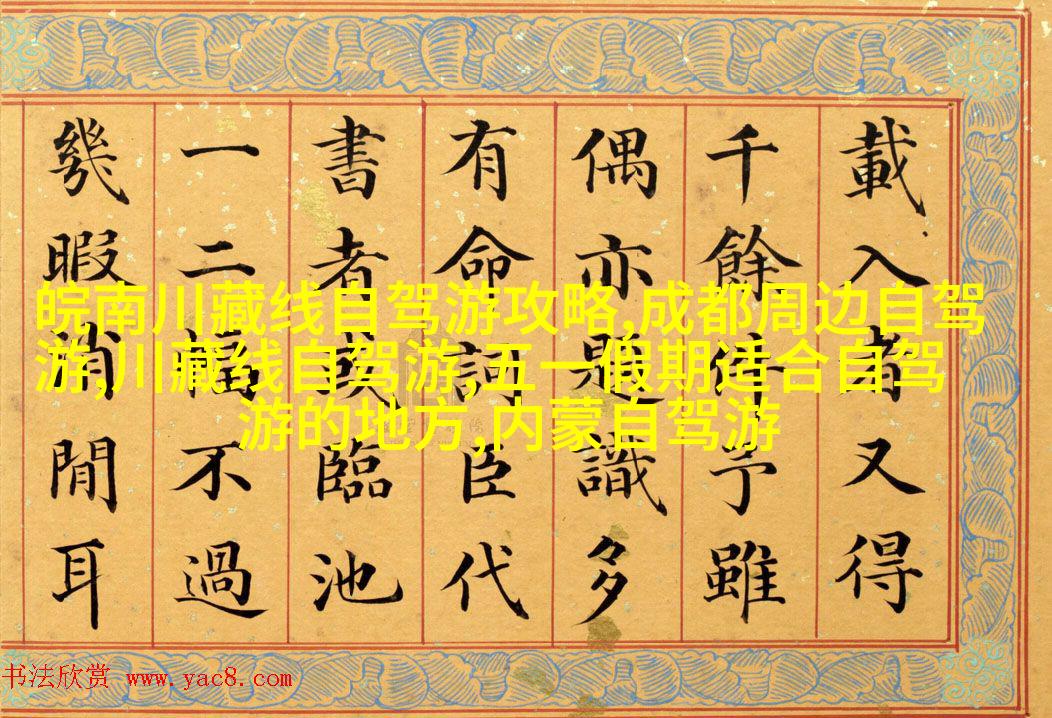 載入者又得
千餘件予雖
偶亦題識多
有命詞臣代
書者或臨池
一二幅不過
幾暇消閒耳
皖南川藏线自驾游攻略,成都周边自驾
游,川藏线自驾游,五一假期适合自驾
游的地方,内蒙自驾游
书法欣赏 www.yac8.com